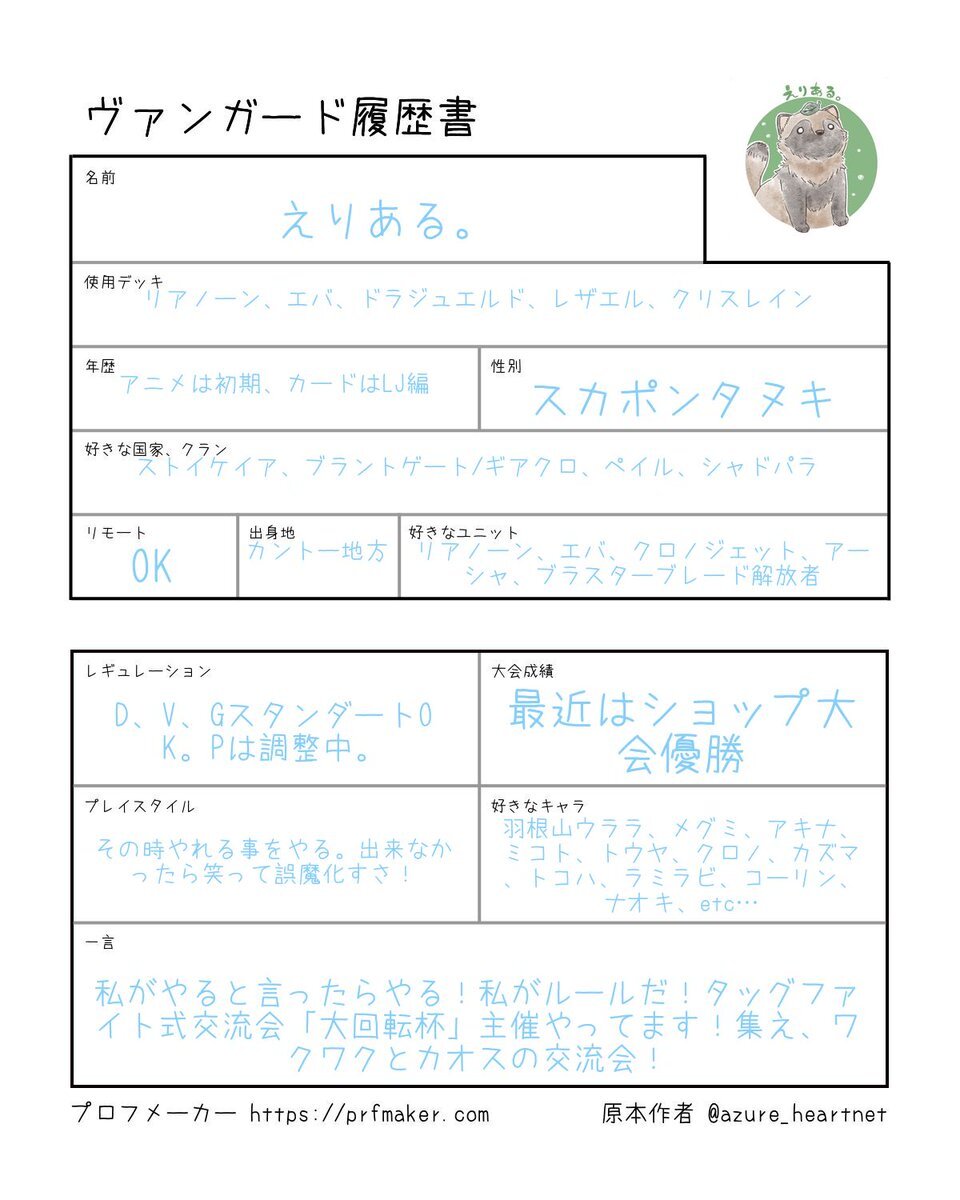 えりある。
ヴァンガード履歴書
名前
えりある。
使用デッキ
リアノーン、エバ、ドラジュエルド、レザエル、クリスレイン
年歴
アニメは初期、カードはLJ編
性別
スカポンタヌキ
好きな国家、クラン
ストイケイア、ブラントゲート/ギアクロ、ペイル、シャドパラ
リモート
OK
出身地
カントー地方
好きなユニット
リアノーン、エバ、クロノジェット、アー
シャ、ブラスターブレード解放者
レギュレーション
D、V、GスタンダートO
K。Pは調整中。
大会成績
最近はショップ大
会優勝
プレイスタイル
その時やれる事をやる。出来なか
ったら笑って誤魔化すさ！
好きなキャラ
羽根山ウララ、メグミ、アキナ、
ミコト、トウヤ、クロノ、カズマ
、トコハ、ラミラビ、コーリン、
ナオキ、etc…
一言
私がやると言ったらやる！私がルールだ！タッグファ
イト式交流会「大回転杯」主催やってます！集え、ワ
クワクとカオスの交流会！
プロフメーカー https://prfmaker.com
原本作者 @azure_heartnet